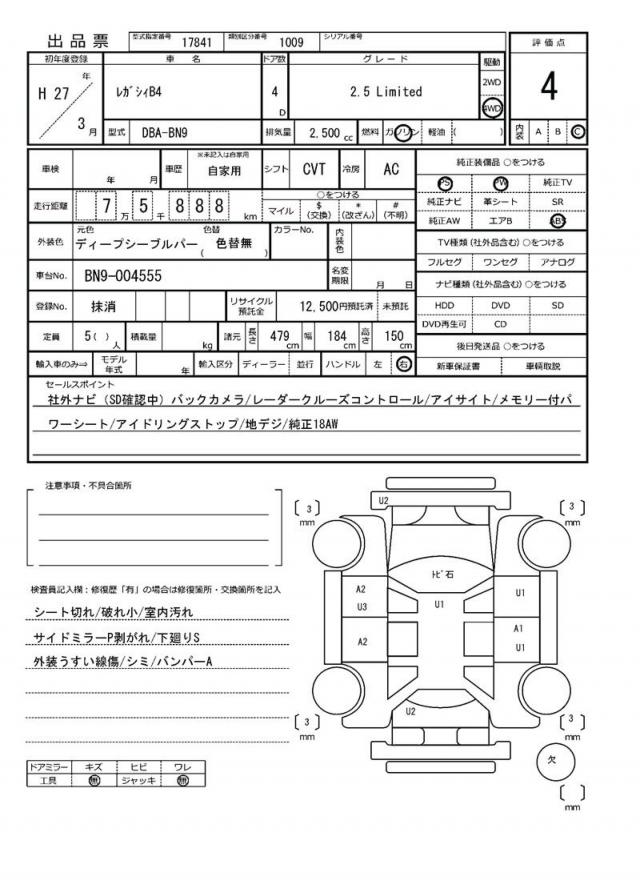 出品票 型式指定番号 17841 類別区分番号 1009 シリアル番号
初年度登録 車 名 ドア数 グレード 駆動 評価点
H 27 年 3 月 ﾚｶﾞｼｨB4 4 D 2.5 Limited 2WD 4WD 4
型式 DBA-BN9 排気量 2,500 cc 燃料 ガソリン 軽油 ( ) 内装 A B C
車検 年 月 車歴 ※未記入は自家用 自家用 シフト CVT 冷房 AC 純正装備品 ○をつける
PS PW 純正TV
走行距離 7 万 5 千 8 8 8 km ○をつける マイル $ (交換) * (改ざん) # (不明) 純正ナビ 革シート SR
純正AW エアB ABS
外装色 元色 ディープシーブルパー 色替 ( 色替無 ) カラーNo. 内装色 TV種類 (社外品含む) ○をつける
フルセグ ワンセグ アナログ
車台No. BN9-004555 名変期限 月 日 ナビ種類 (社外品含む) ○をつける
登録No. 抹消 リサイクル預託金 12,500円預託済 未預託 HDD DVD SD
DVD再生可 CD
定員 5 ( ) 人 積載量 kg 諸元 長さ 479 cm 幅 184 cm 高さ 150 cm 後日発送品 ○をつける
輸入車のみ⇒ モデル年式 年 輸入区分 ディーラー 並行 ハンドル 左 右 新車保証書 車輌取説
セールスポイント
社外ナビ（SD確認中）バックカメラ/レーダークルーズコントロール/アイサイト/メモリー付パ
ワーシート/アイドリングストップ/地デジ/純正18AW
注意事項・不具合箇所
U2
3 mm
3 mm
ﾄﾋﾞ石
検査員記入欄：修復歴「有」の場合は修復箇所・交換箇所を記入
A2
U3
U1
U1
シート切れ/破れ小/室内汚れ
サイドミラーP剥がれ/下廻りS
A2
A1
U1
外装うすい線傷/シミ/バンパーA
U2
3 mm
3 mm
ドアミラー キズ ヒビ ワレ
工具 無 ジャッキ 無
欠
mm